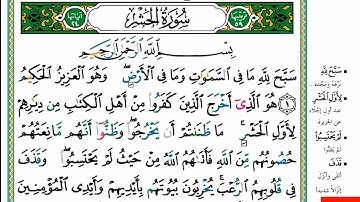 سُورَةُ الْحَشْرِ
بِسْمِ اللَّهِ الرَّحْمَٰنِ الرَّحِيمِ
سَبَّحَ لِلَّهِ مَا فِي السَّمَٰوَٰتِ وَمَا فِي الْأَرْضِ ۖ وَهُوَ الْعَزِيزُ الْحَكِيمُ
١ هُوَ الَّذِي أَخْرَجَ الَّذِينَ كَفَرُوا مِنْ أَهْلِ الْكِتَٰبِ مِن دِيَٰرِهِمْ
لِأَوَّلِ الْحَشْرِ ۚ مَا ظَنَنتُمْ أَن يَخْرُجُوا ۖ وَظَنُّوا أَنَّهُم مَّانِعَتُهُمْ
حُصُونُهُم مِّنَ اللَّهِ فَأَتَىٰهُمُ اللَّهُ مِنْ حَيْثُ لَمْ يَحْتَسِبُوا ۖ وَقَذَفَ
فِي قُلُوبِهِمُ الرُّعْبَ ۚ يُخْرِبُونَ بُيُوتَهُم بِأَيْدِيهِمْ وَأَيْدِي الْمُؤْمِنِينَ
سَبَّحَ لِلَّهِ
لِأَوَّلِ الْحَشْرِ
لَمْ يَحْتَسِبُوا
قَذَفَ